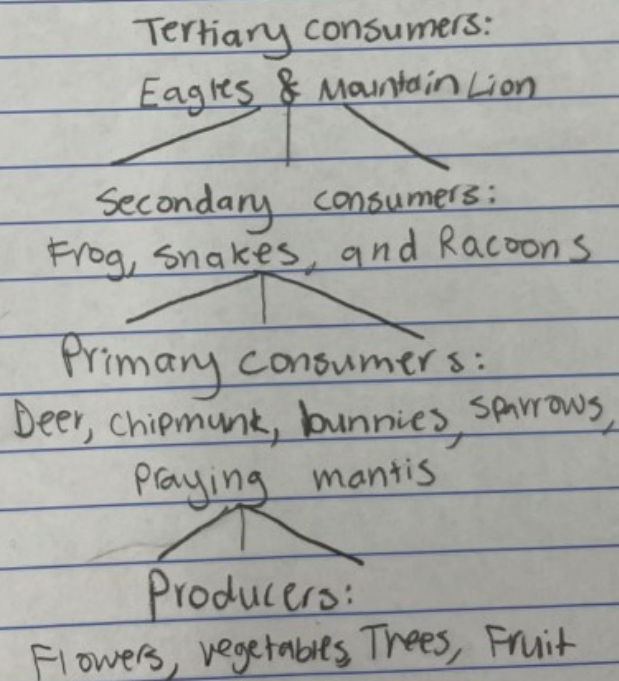 Tertiary consumers:
Eagles & Mountain Lion
Secondary consumers:
Frog, snakes, and Racoons
Primary consumers:
Deer, chipmunk, bunnies, sparrows,
praying mantis
Producers:
Flowers, vegetables, Trees, Fruit